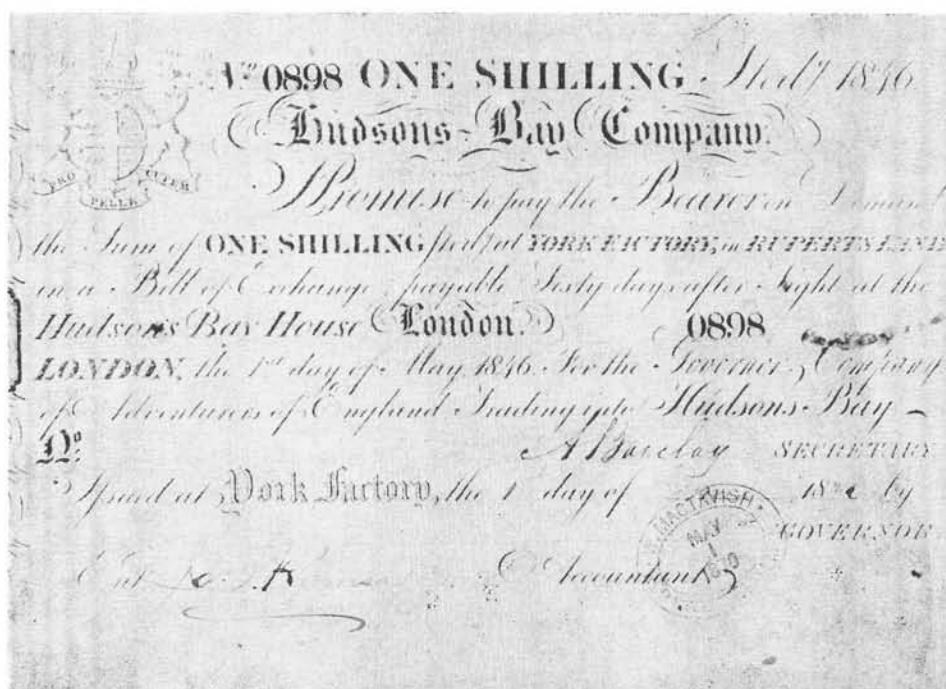 No 0898 ONE SHILLING Sterlg 1846
Hudsons-Bay Company.
PRO PELLE CUTEM
Promise to pay the Bearer on Demand
the Sum of ONE SHILLING sterlg at YORK FACTORY, in RUPERTS LAND
in a Bill of Exchange payable Sixty days after Sight at the
Hudson's Bay House London. 0898
LONDON, the 1st day of May 1846. For the Governor & Company
of Adventurers of England Trading into Hudsons Bay
No
A Barclay SECRETARY
Issued at York Factory, the 1 day of 18 by
MACTAVISH
MAY 1
GOVERNOR
Ent Accountant